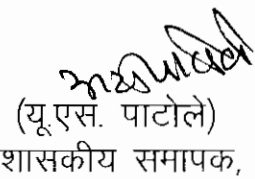 (यू.एस. पाटोले)
शासकीय समापक,